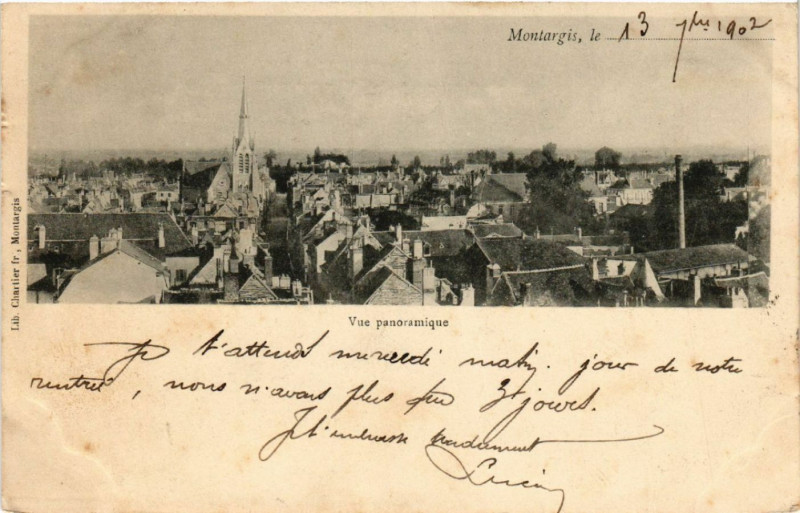 Montargis, le 13 7bre 1902
Lib. Chartier fr., Montargis
Vue panoramique
Je t'attends mercredi matin. jour de notre
rentrée, nous n'avons plus que 3 jours.
Je t'embrasse tendrement
Lucien